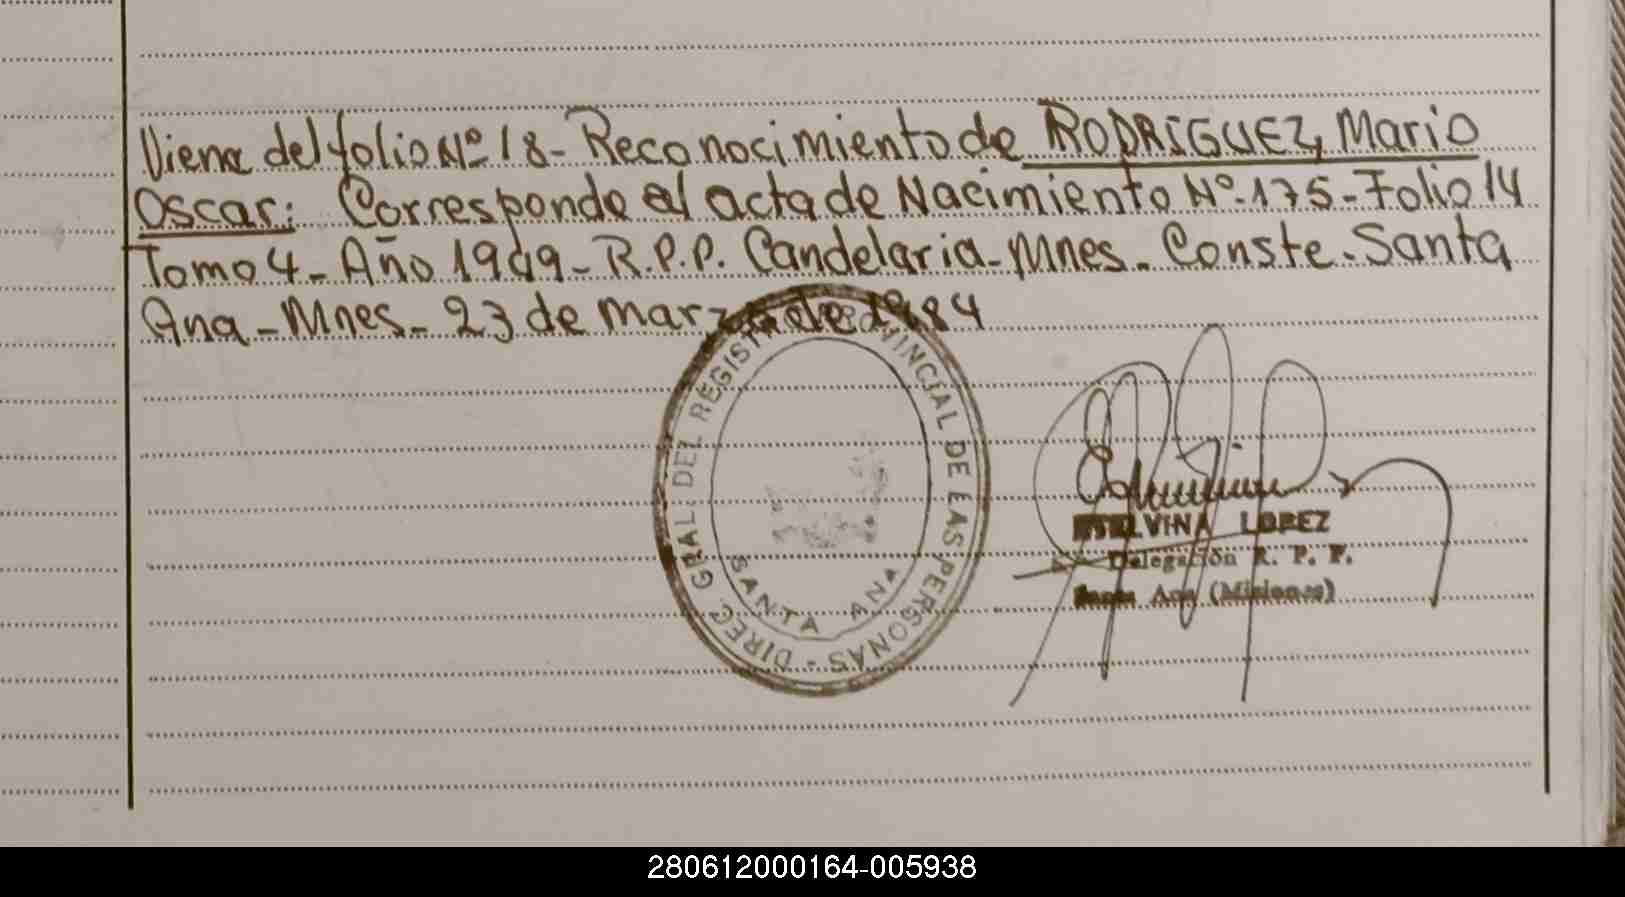 Viene del folio Nº 18 - Reconocimiento de RODRIGUEZ, Mario
Oscar: Corresponde al acta de Nacimiento Nº 175 - Folio 14
Tomo 4 - Año 1949 - R.P.P. Candelaria - Mnes. Conste. Santa
Ana - Mnes - 23 de marzo de 1984
DIREC. GRAL. DEL REGISTRO PROVINCIAL DE LAS PERSONAS -
SANTA ANA
LOPEZ
Delegación R. P. P.
Santa Ana (Misiones)
280612000164-005938